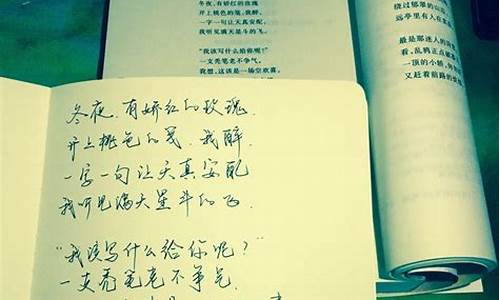 冬夜,有娇红的玫瑰
开上桃色的笺,我醉,
一字一句让天真安配,
我听见满天星斗的飞。
"我该写什么给你呢?"
一支秃笔老不争气。
我想,这该是一场空欢喜,
绕过郁郁的山
远亭里有人在
最是那迷人的
看,乱鸦正点
一顶的小轿,
又赶着前路的
冬夜,有娇红的玫瑰,
开上桃色的笺,我醉,
一字一句让天真安配
我听见满天星斗的飞.
"我该写什么给你呢?"
一支秃笔老不争气.